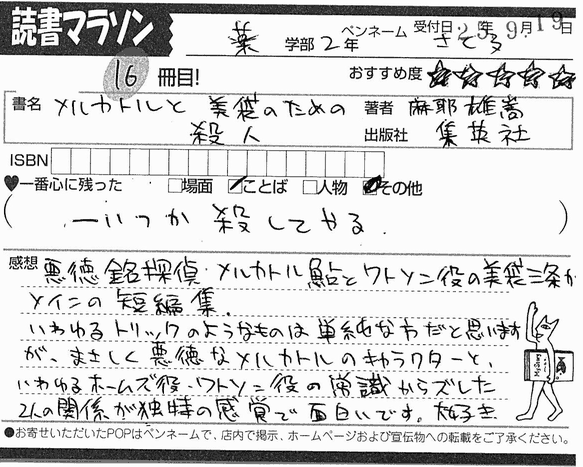 読書マラソン
薬 学部 2年
ペンネーム さとる
受付日 25年 9月 19日
16 冊目!
おすすめ度 ☆☆☆☆☆
書名 メルカトルと 美袋のための
殺人
著者 麻耶雄嵩
出版社 集英社
ISBN
♥一番心に残った □場面 ☑ことば □人物 ☑その他
( 、―いつか 殺してやる. )
感想 悪徳銘探偵・メルカトル鮎とワトソン役の美袋三条が
メインの短編集.
いわゆるトリックのようなものは単純な方だと思います
が、まさしく悪徳なメルカトルのキャラクターと、
いわゆるホームズ役・ワトソン役の常識からズレた
2人の関係が独特の感覚で面白いです。大好き
●お寄せいただいたPOPはペンネームで、店内で掲示、ホームページおよび宣伝物への転載をご了承ください。